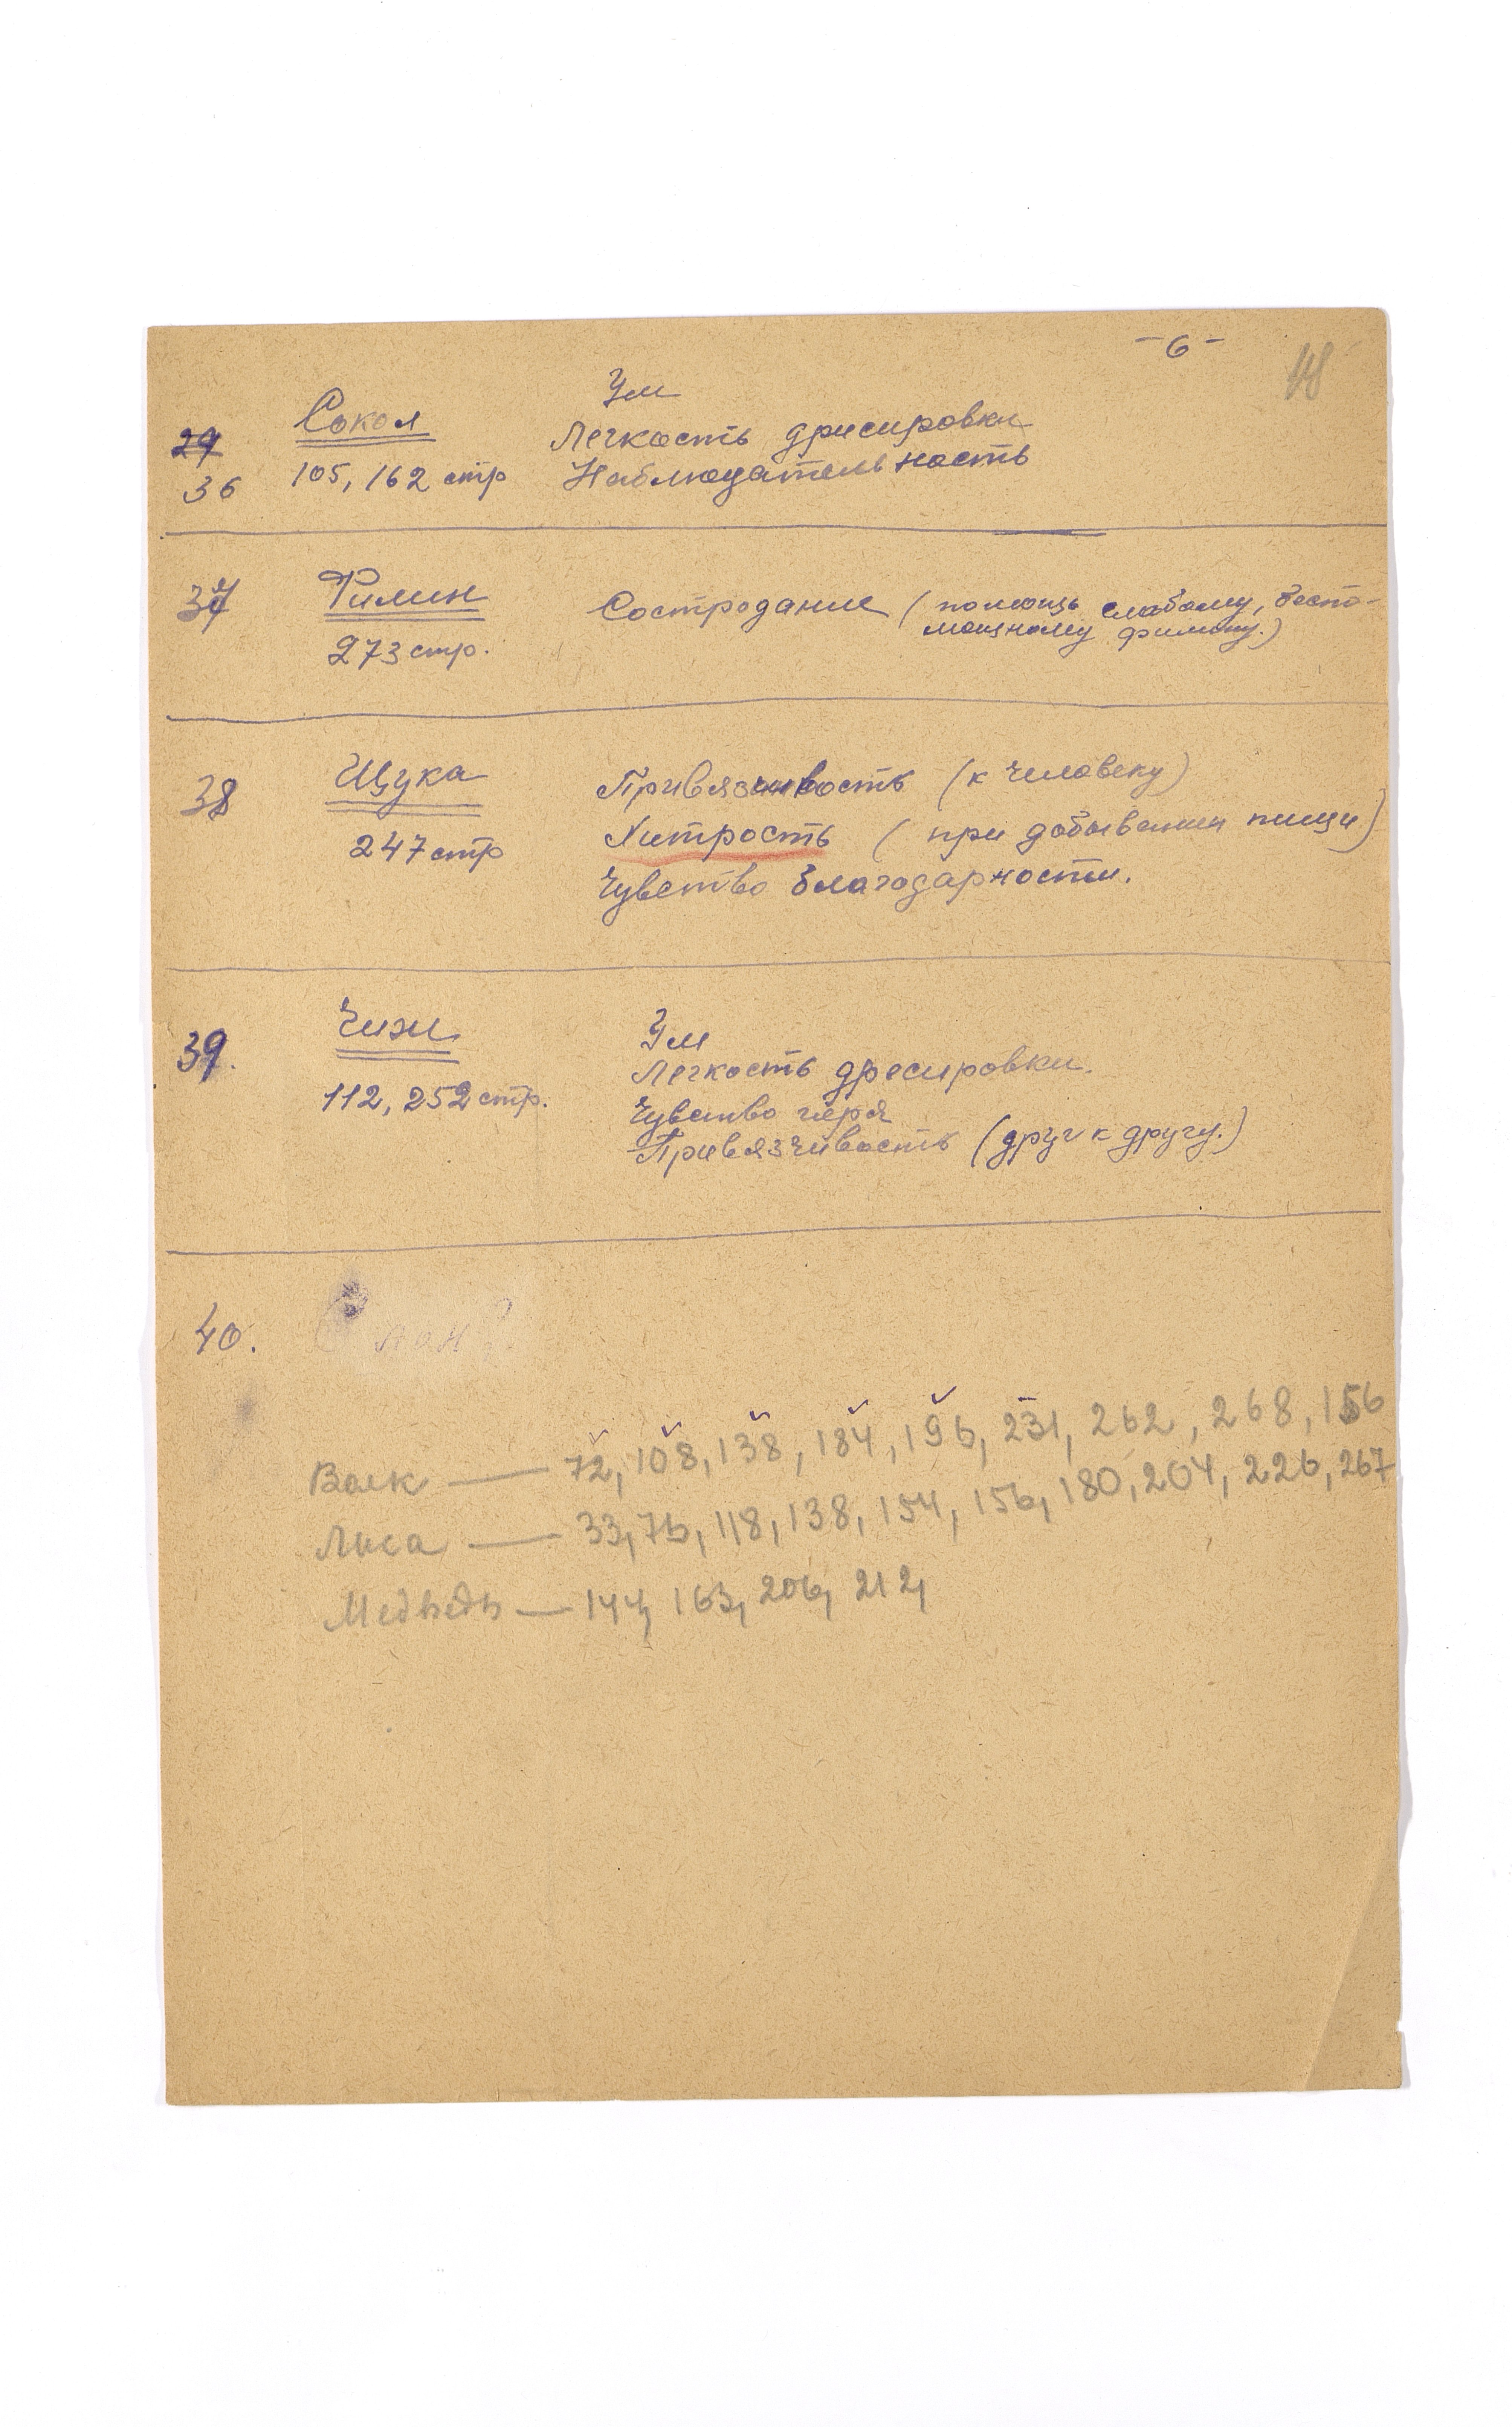 -6-
Ум
Сокол
29
Легкость дрисировки
105, 162 стр
Наблюдательность
36
37
Филин
Состродание (помощь слабому, беспо-
мощному филину.)
273 стр.
38
Щука
Привязчивость (к человеку)
Хитрость (при добывании пищи)
247 стр
Чувство благодарности.
39.
Чижи
Ум
Легкость дресировки.
112, 252 стр.
Чувство
Привязчивость (друг к другу.)
40.
Волк — 72, 108, 138, 184, 196, 231, 262, 268, 156
Лиса — 33, 76, 118, 138, 154, 156, 180, 204, 226, 267
Медведь — 144, 163, 206, 212,